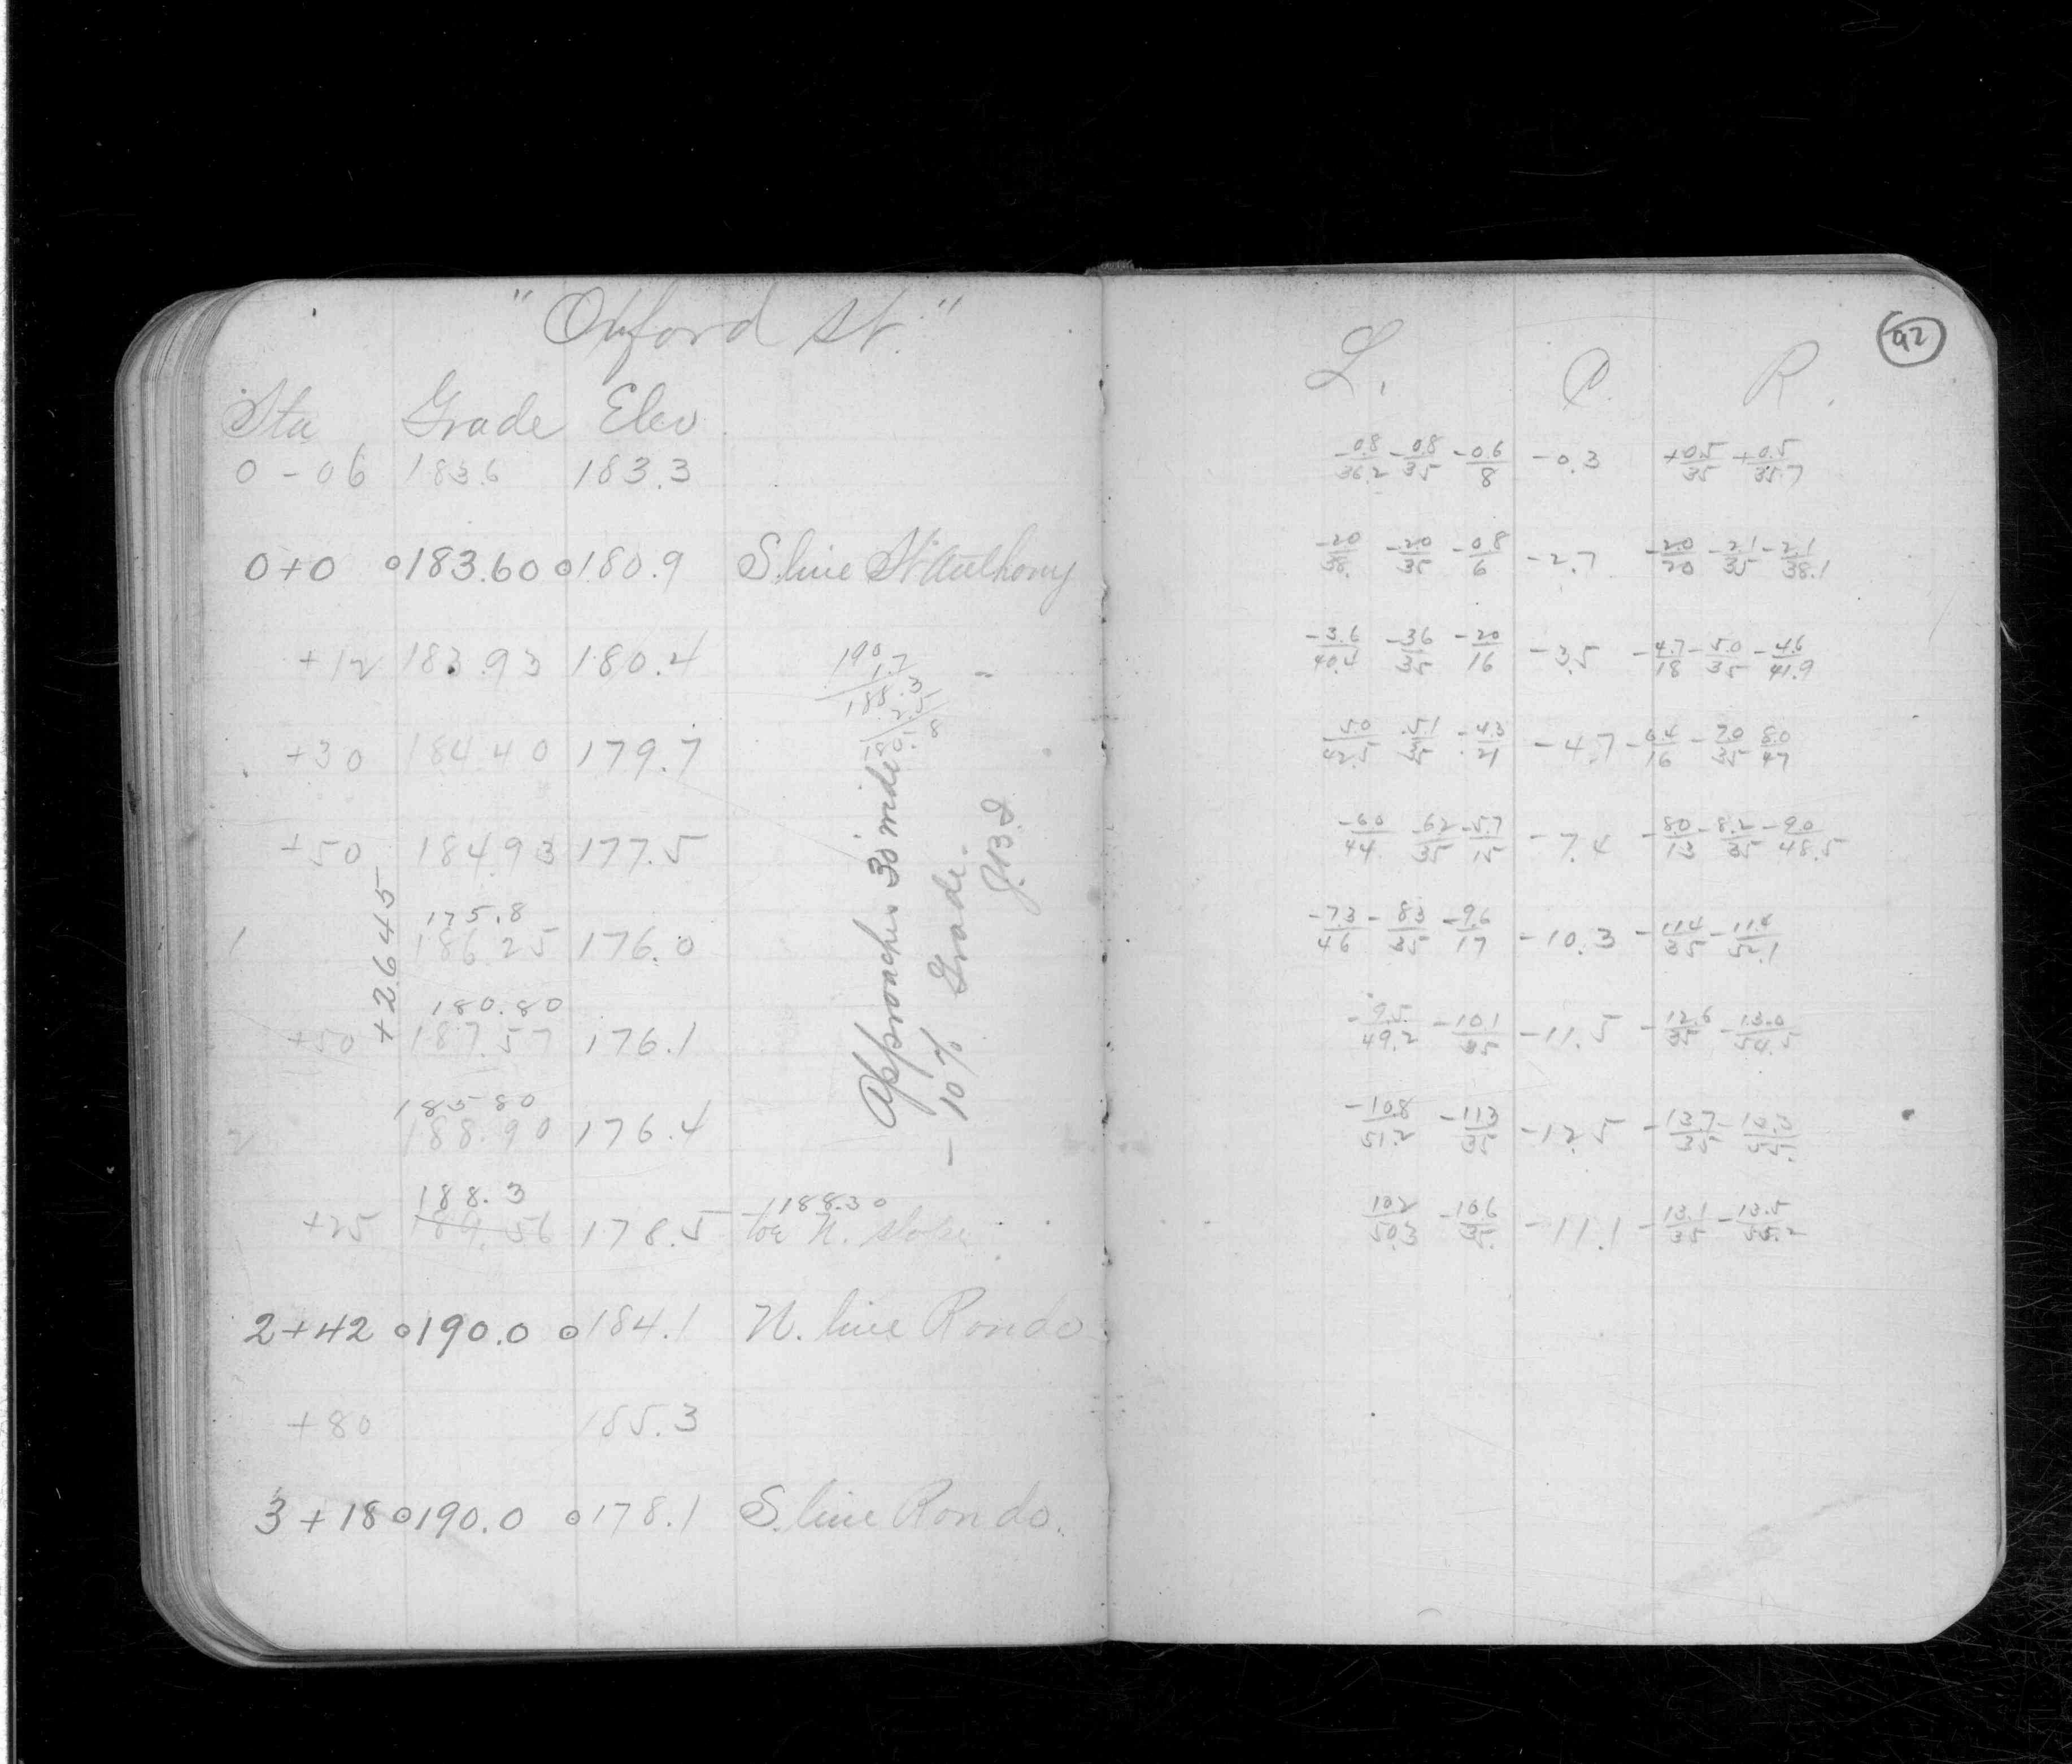 "Oxford St."
Sta Grade Elev
0 - 06 183.6 183.3
0+0 183.60 180.9 S. line St Anthony
+12 183.93 180.4
190
1.7
188.3
2.5
+30 184.40 179.7
+50 184.93 177.5
+2.645
175.8
1 186.25 176.0
180.80
+50 187.57 176.1
185.80
2 188.90 176.4
188.3
+25 189.56 178.5
188.30
toe N. slope
2+42 190.0 184.1 N. line Rondo
+80 185.3
3+18 190.0 178.1 S. line Rondo.
Approaches 30' wide
- 10% Grade.
92
L. C. R.
-0.8/36.2 -0.8/35 -0.6/8 -0.3 +0.5/35 +0.5/35.7
-2.0/38. -2.0/35 -0.8/6 -2.7 -2.0/20 -2.1/35 -2.1/38.1
-3.6/40.4 -3.6/35 -2.0/16 -3.5 -4.7/18 -5.0/35 -4.6/41.9
-5.0/42.5 -5.1/35 -4.3/21 -4.7 -6.4/16 -7.0/35 8.0/47
-6.0/44 -6.2/35 -5.7/15 -7.4 -8.0/13 -8.2/35 -9.0/48.5
-7.3/46 -8.3/35 -9.6/17 -10.3 -11.4/35 -11.4/52.1
-9.5/49.2 -10.1/35 -11.5 -12.6/35 -13.0/54.5
-10.8/51.2 -11.3/35 -12.5 -13.7/35 -13.3/55.
10.2/50.3 -10.6/35. -11.1 -13.1/35 -13.5/55.2